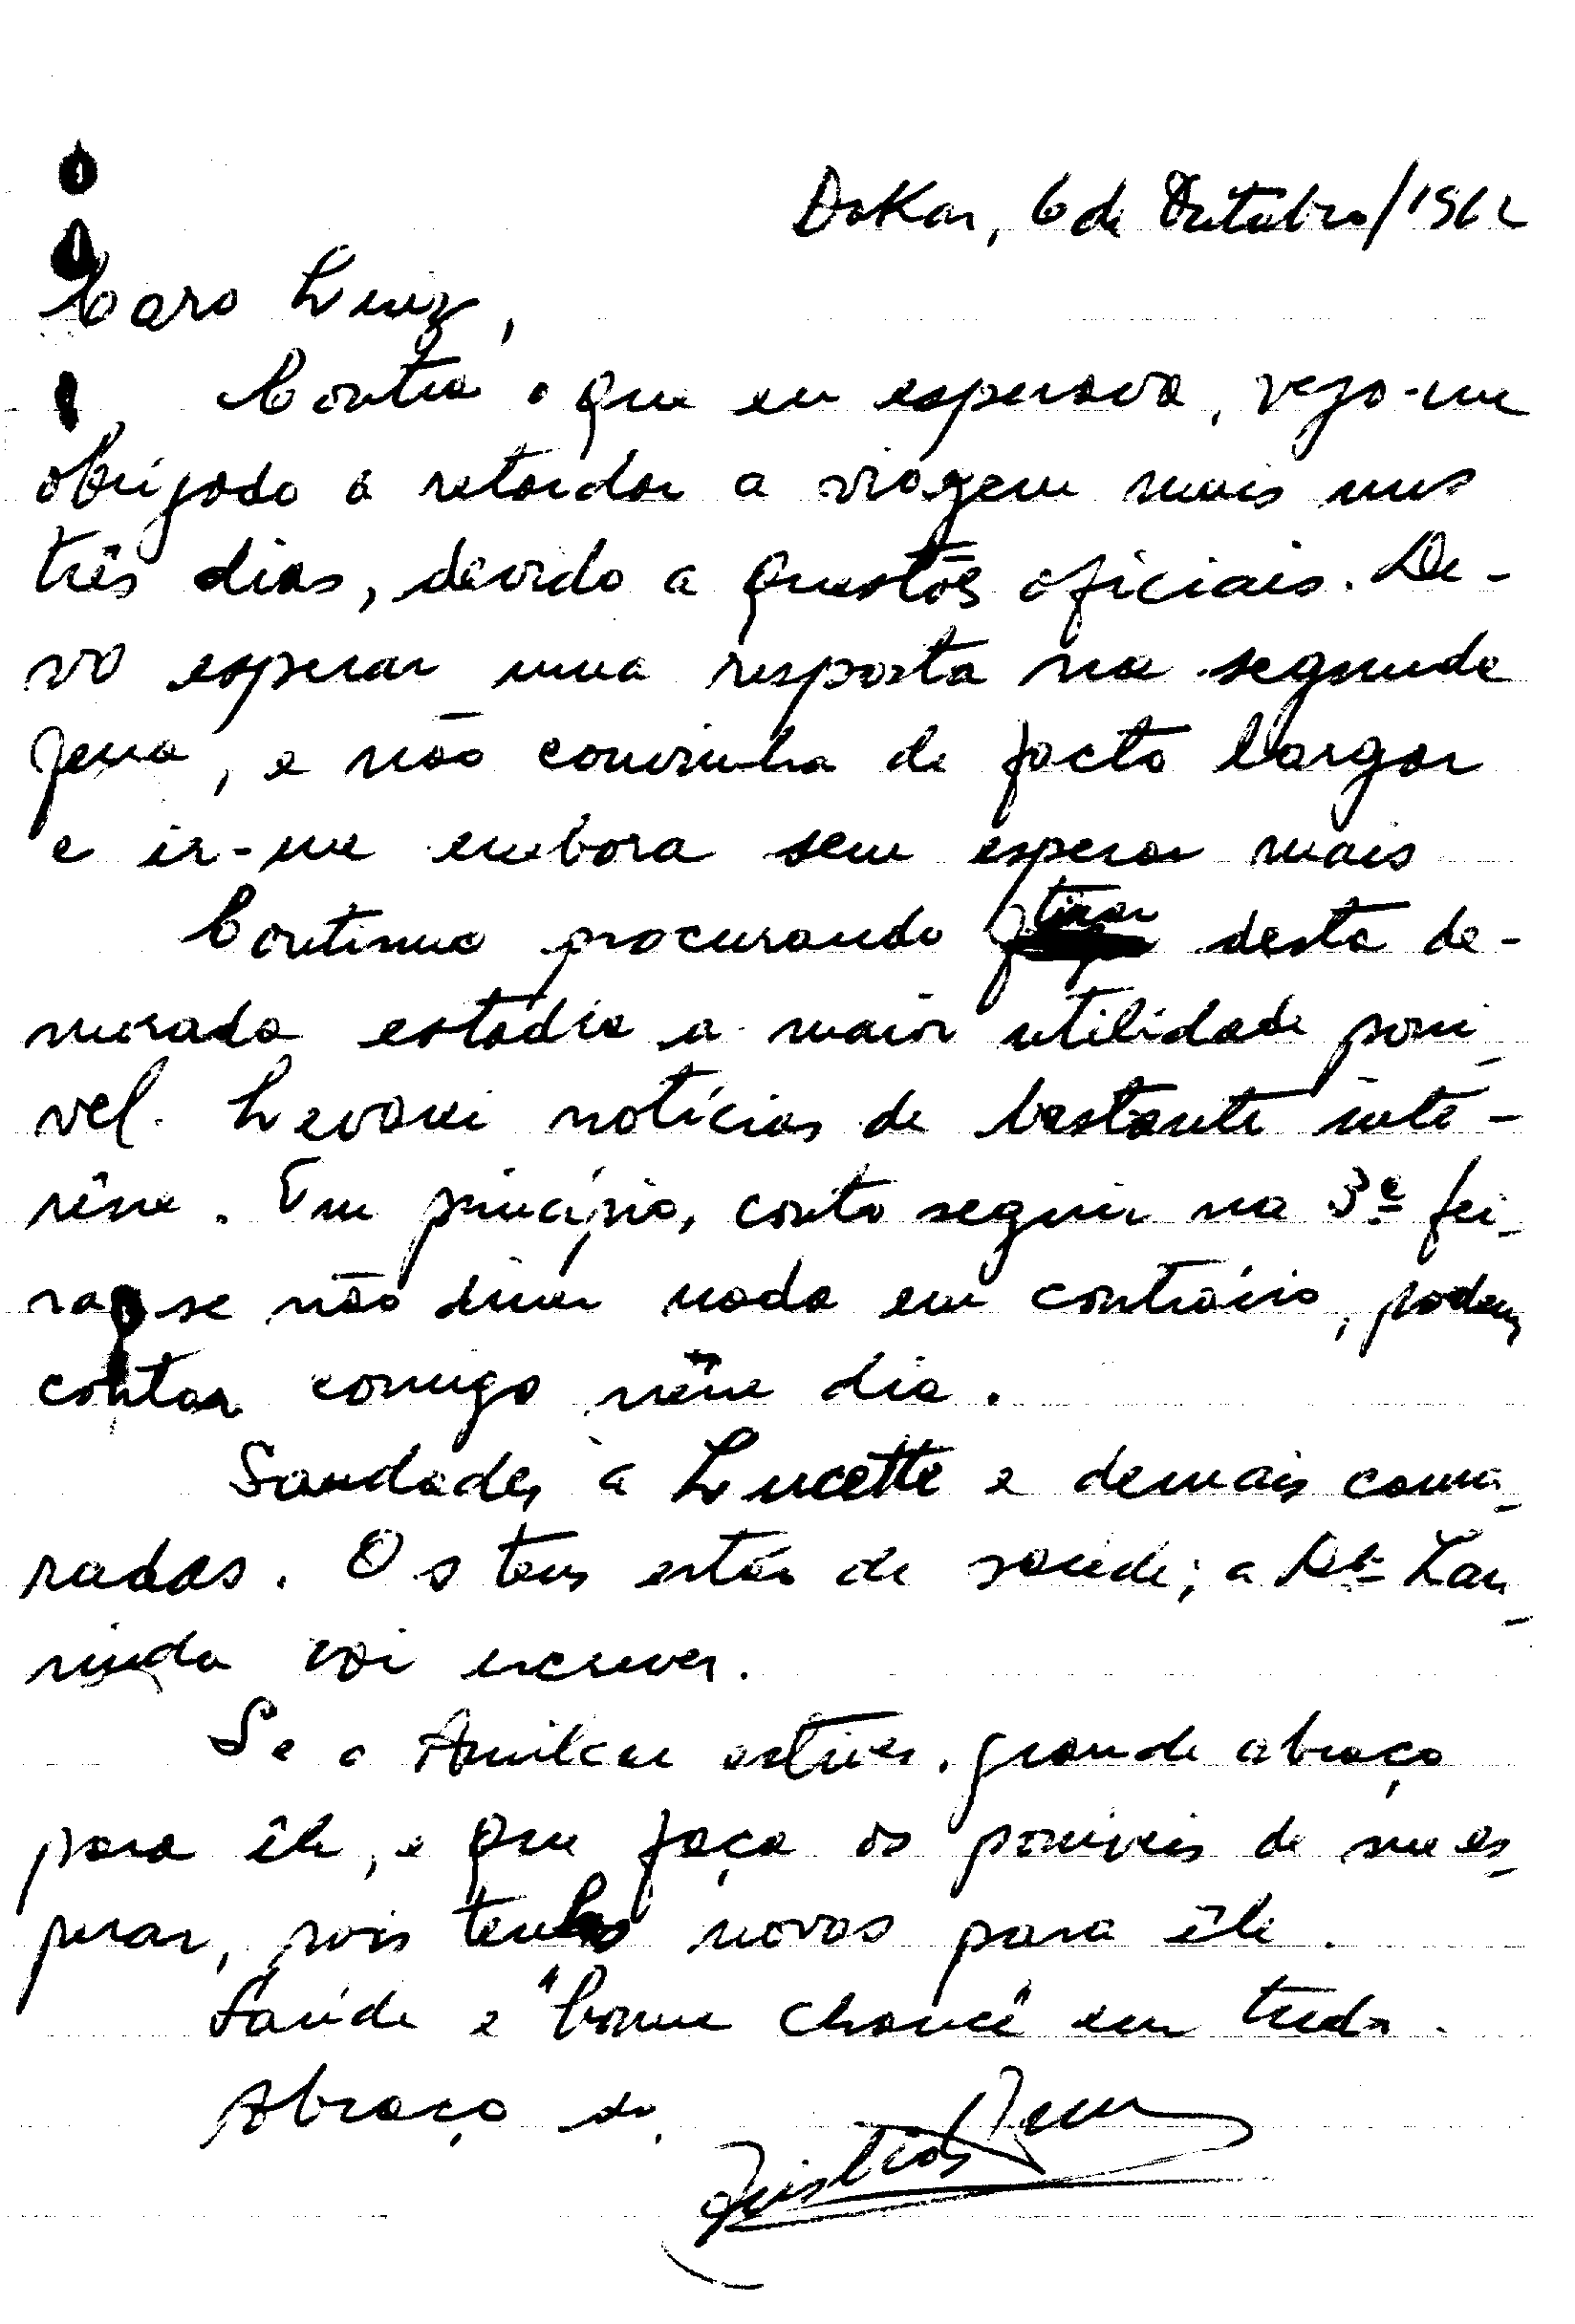 Dakar, 6 de Outubro/1962
Caro Luiz,
Contra o que eu esperava, vejo-me
obrigado a retardar a viagem mais uns
três dias, devido a questões oficiais. De-
vo esperar uma resposta na segunda
feira, e não convinha de facto largar
e ir-me embora sem esperar mais
Continuo procurando tirar desta de-
morada estadia a maior utilidade possí-
vel. Levarei notícias de bastante inte-
rêsse. Em princípio, conto seguir na 3ª fei-
ra, se não disser nada em contrário, podem
contar comigo nêsse dia.
Saudades à Lucette e demais cama-
radas. Os teus estão de saúde; a Dª Lau-
rinda vai escrever.
Se o Amílcar estiver, grande abraço
para êle, e que faça os possíveis de me es-
perar, pois tenho novas para êle.
Saúde e "bonne chance" em tudo.
Abraço do,